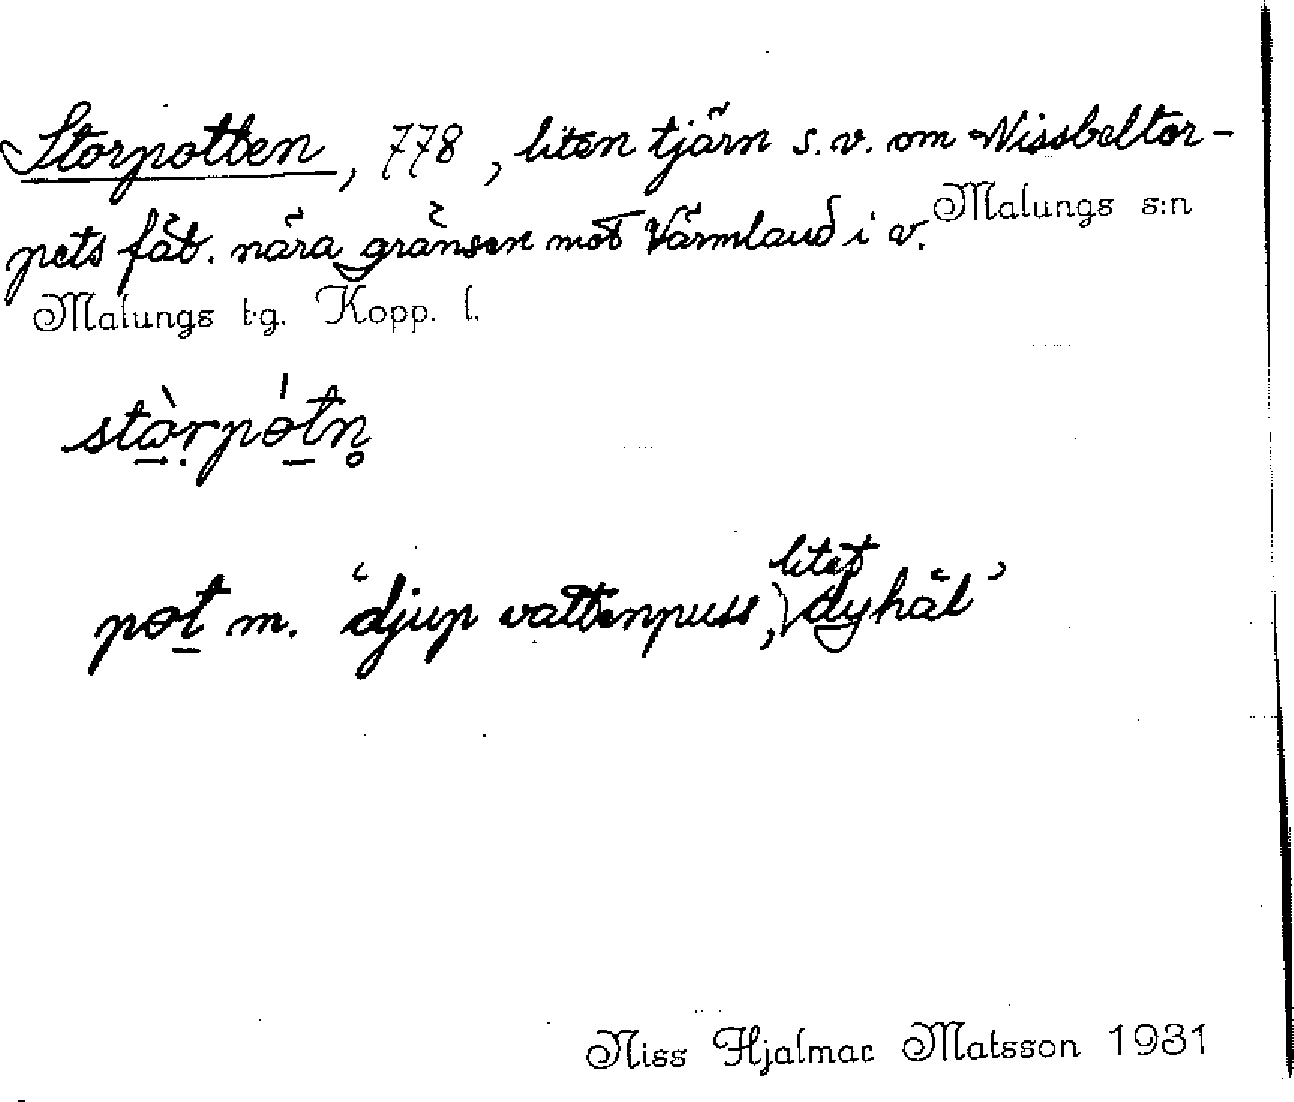 Storpotten, 778, liten tjärn s.v. om Nissbeltor-
pets fäb. nära gränsen mot Värmland i v.
Malungs s:n
Malungs t.g. Kopp. l.
stɷ̀rpótn̥
pot m. 'djup vattenpuss, litet dyhål'
Niss Hjalmar Matsson 1931